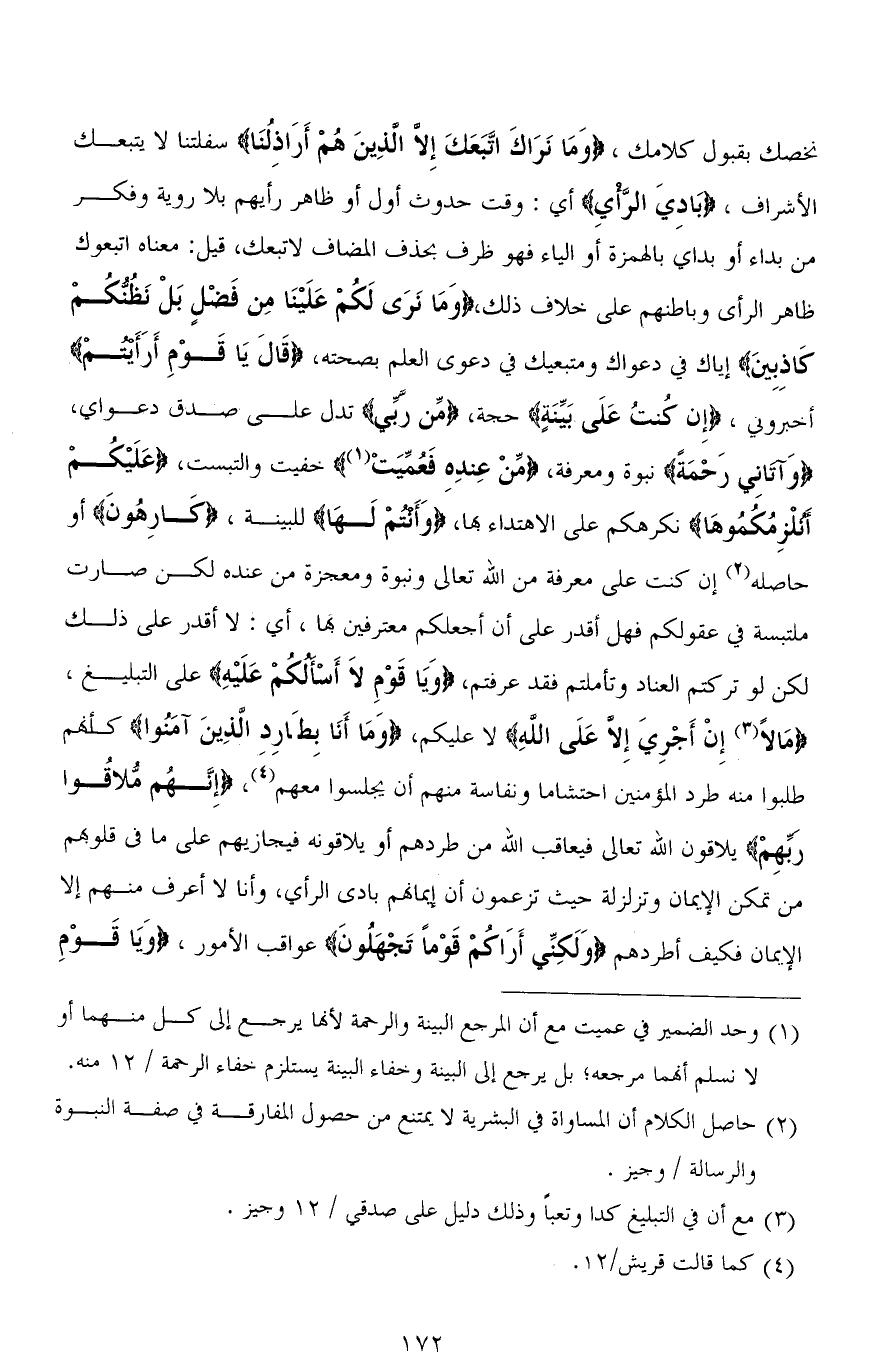 نخصك بقبول كلامك ، ﴿وَمَا نَرَاكَ اتَّبَعَكَ إِلاَّ الَّذِينَ هُمْ أَرَاذِلُنَا﴾ سفلتنا لا يتبعك
الأشراف ، ﴿بَادِيَ الرَّأْيِ﴾ أي : وقت حدوث أول أو ظاهر رأيهم بلا روية وفكر
من بداء أو بداي بالهمزة أو الياء فهو ظرف بحذف المضاف لاتبعك، قيل: معناه اتبعوك
ظاهر الرأى وباطنهم على خلاف ذلك،﴿وَمَا نَرَى لَكُمْ عَلَيْنَا مِن فَضْلٍ بَلْ نَظُنُّكُمْ
كَاذِبِينَ﴾ إياك في دعواك ومتبعيك في دعوى العلم بصحته، ﴿قَالَ يَا قَوْمِ أَرَأَيْتُمْ﴾
أخبروني ، ﴿إِن كُنتُ عَلَى بَيِّنَةٍ﴾ حجة، ﴿مِّن رَّبِّي﴾ تدل على صدق دعواي،
﴿وَآتَانِي رَحْمَةً﴾ نبوة ومعرفة، ﴿مِّنْ عِندِهِ فَعُمِّيَتْ(١)﴾ خفيت والتبست، ﴿عَلَيْكُمْ
أَنُلْزِمُكُمُوهَا﴾ نكرهكم على الاهتداء بها، ﴿وَأَنْتُمْ لَهَا﴾ للبينة ، ﴿كَارِهُونَ﴾ أو
حاصله(٢) إن كنت على معرفة من الله تعالى ونبوة ومعجزة من عنده لكن صارت
ملتبسة في عقولكم فهل أقدر على أن أجعلكم معترفين بها ، أي : لا أقدر على ذلك
لكن لو تركتم العناد وتأملتم فقد عرفتم، ﴿وَيَا قَوْمِ لاَ أَسْأَلُكُمْ عَلَيْهِ﴾ على التبليغ ،
﴿مَالاً(٣) إِنْ أَجْرِيَ إِلاَّ عَلَى اللَّهِ﴾ لا عليكم، ﴿وَمَا أَنَا بِطَارِدِ الَّذِينَ آمَنُوا﴾ كأنهم
طلبوا منه طرد المؤمنين احتشاما ونفاسة منهم أن يجلسوا معهم(٤)، ﴿إِنَّهُم مُّلاقُوا
رَبِّهِمْ﴾ يلاقون الله تعالى فيعاقب الله من طردهم أو يلاقونه فيجازيهم على ما فى قلوبهم
من تمكن الإيمان وتزلزلة حيث تزعمون أن إيمانهم بادى الرأي، وأنا لا أعرف منهم إلا
الإيمان فكيف أطردهم ﴿وَلَكِنِّي أَرَاكُمْ قَوْماً تَجْهَلُونَ﴾ عواقب الأمور ، ﴿وَيَا قَوْمِ
(١) وحد الضمير في عميت مع أن المرجع البينة والرحمة لأنها يرجع إلى كل منهما أو
لا نسلم أنهما مرجعه؛ بل يرجع إلى البينة وخفاء البينة يستلزم خفاء الرحمة / ١٢ منه.
(٢) حاصل الكلام أن المساواة في البشرية لا يمتنع من حصول المفارقة في صفة النبوة
والرسالة / وجيز .
(٣) مع أن في التبليغ كدا وتعباً وذلك دليل على صدقي / ١٢ وجيز .
(٤) كما قالت قريش/١٢.
١٧٢